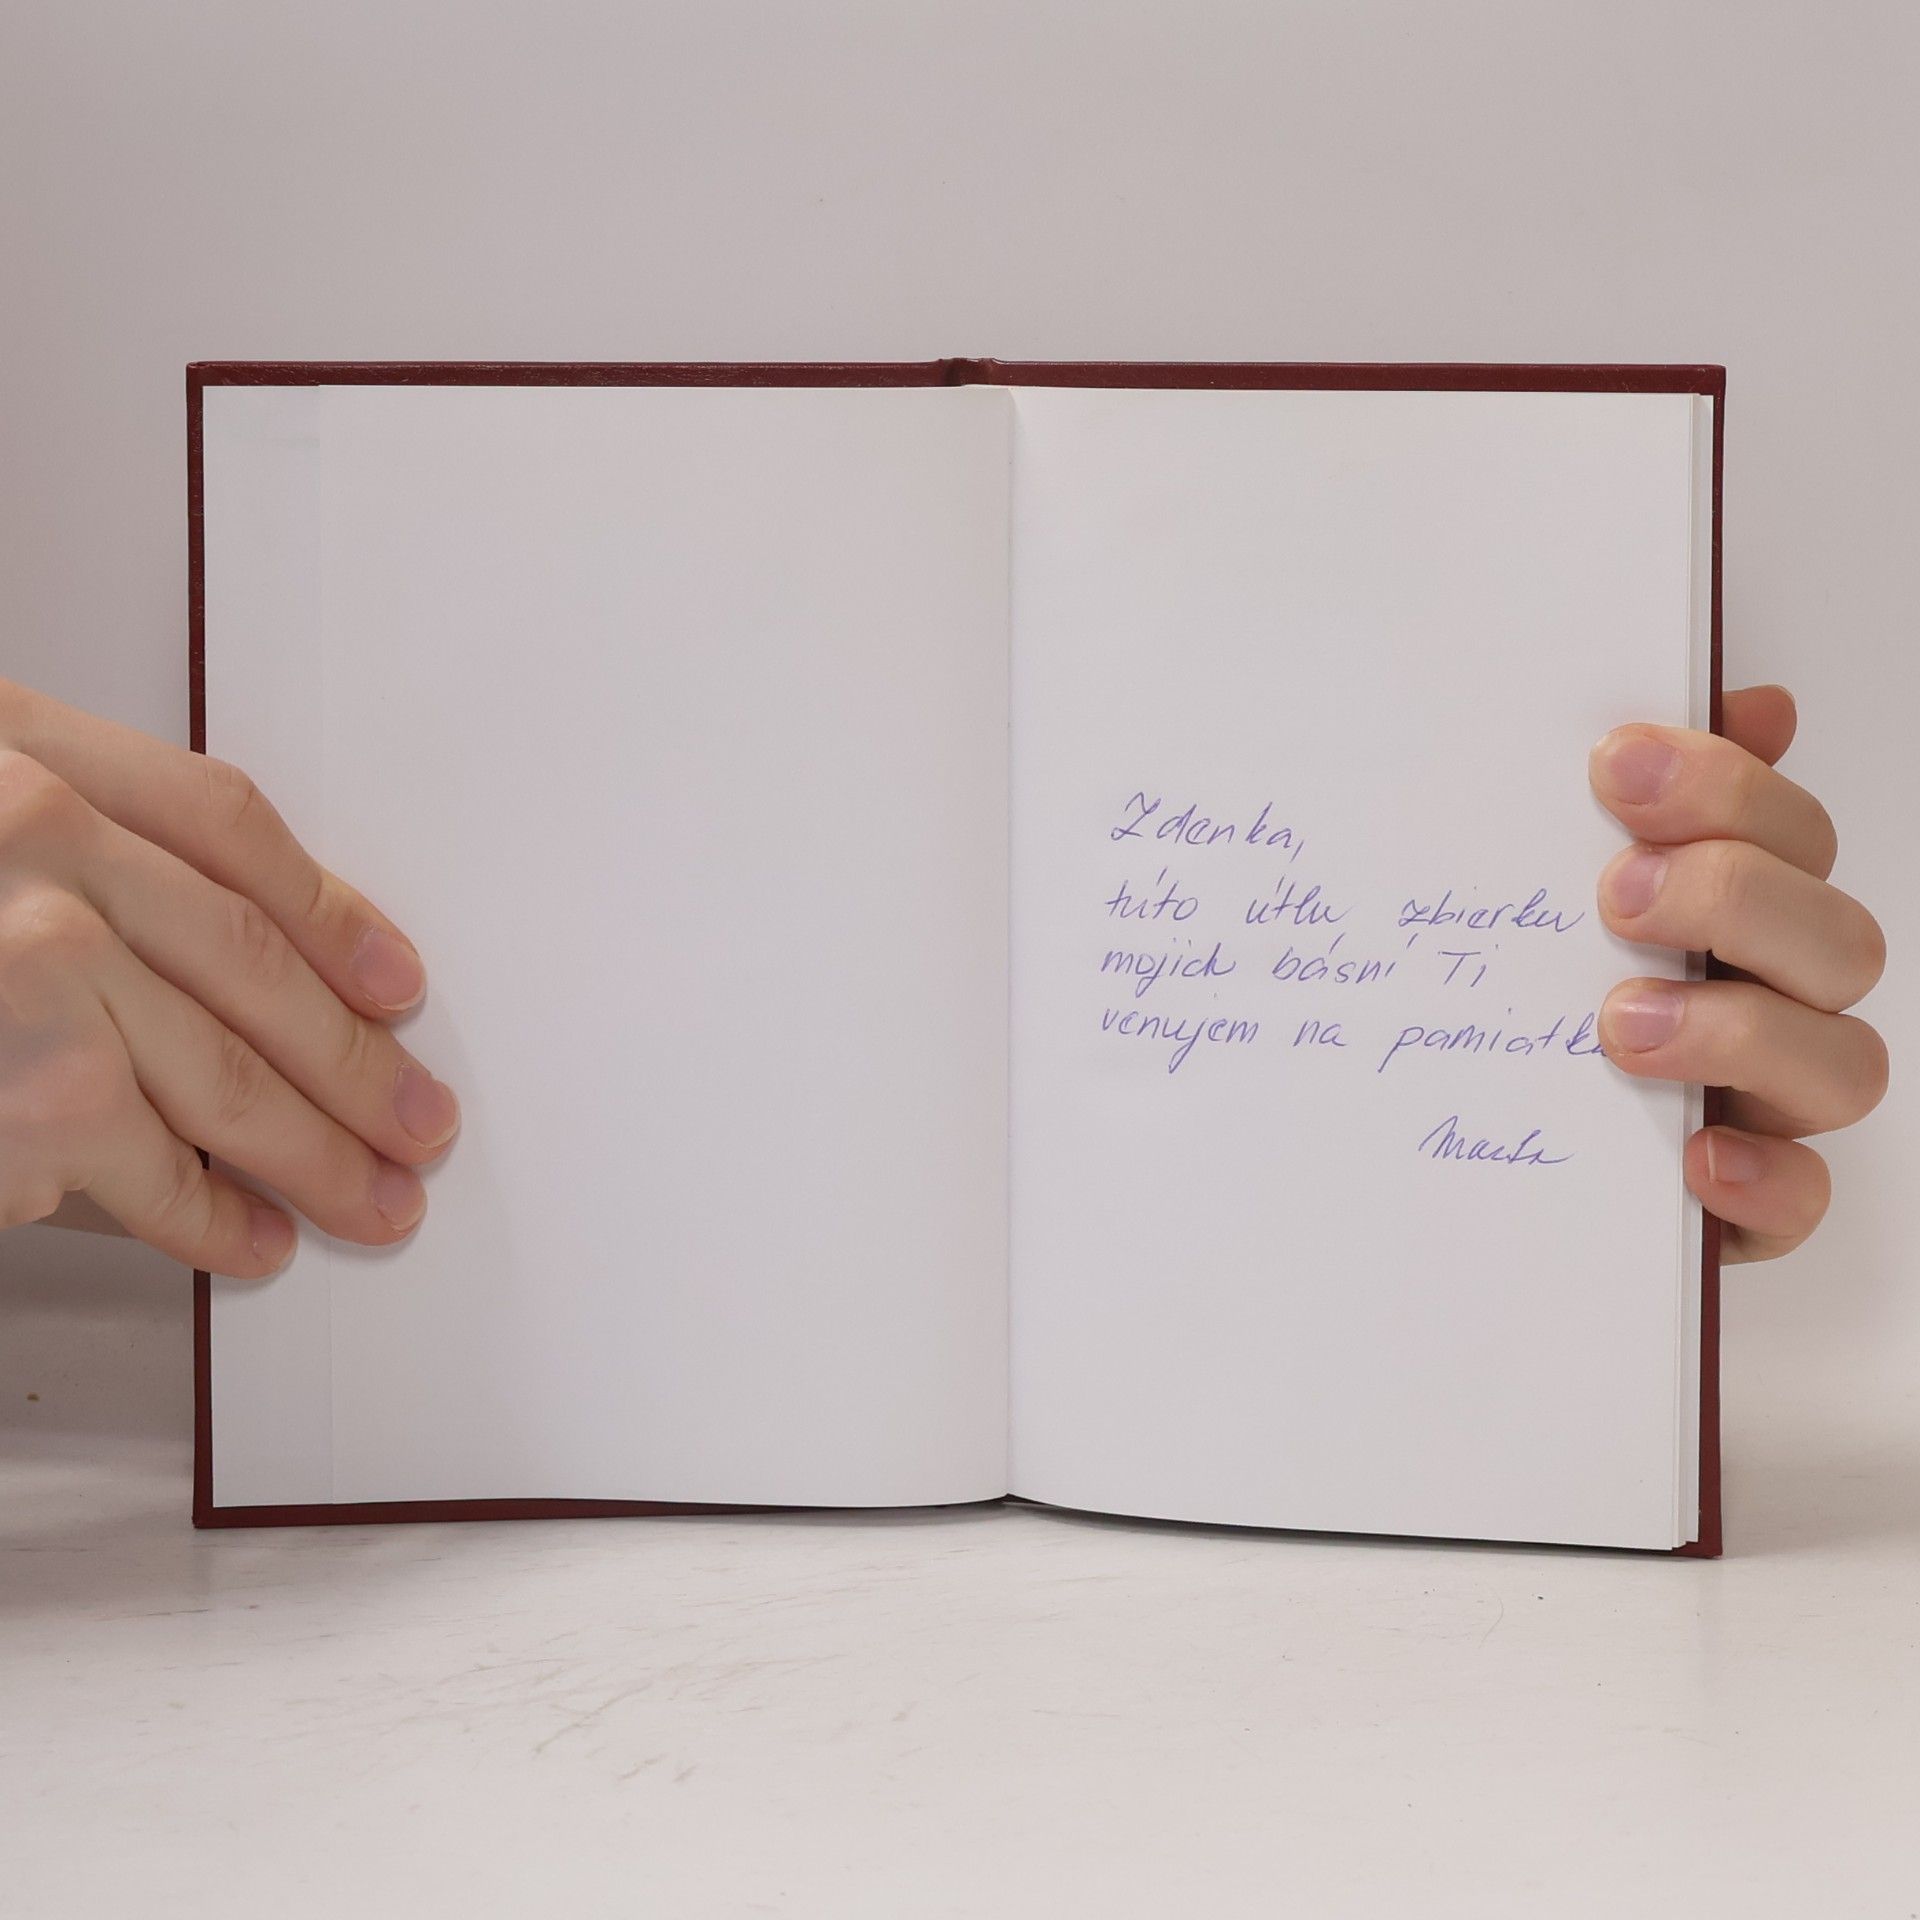 Zdenka,
túto útlu zbierku
mojich básní Ti
venujem na pamiatku
Marta